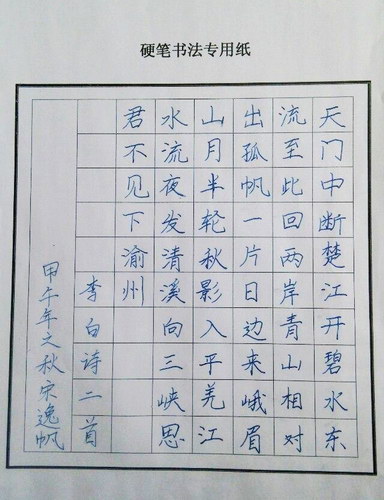 硬笔书法专用纸
天门中断楚江开碧水东
流至此回两岸青山相对
出孤帆一片日边来峨眉
山月半轮秋影入平羌江
水流夜发清溪向三峡思
君不见下渝州
李白诗二首
甲午年之秋宋逸帆